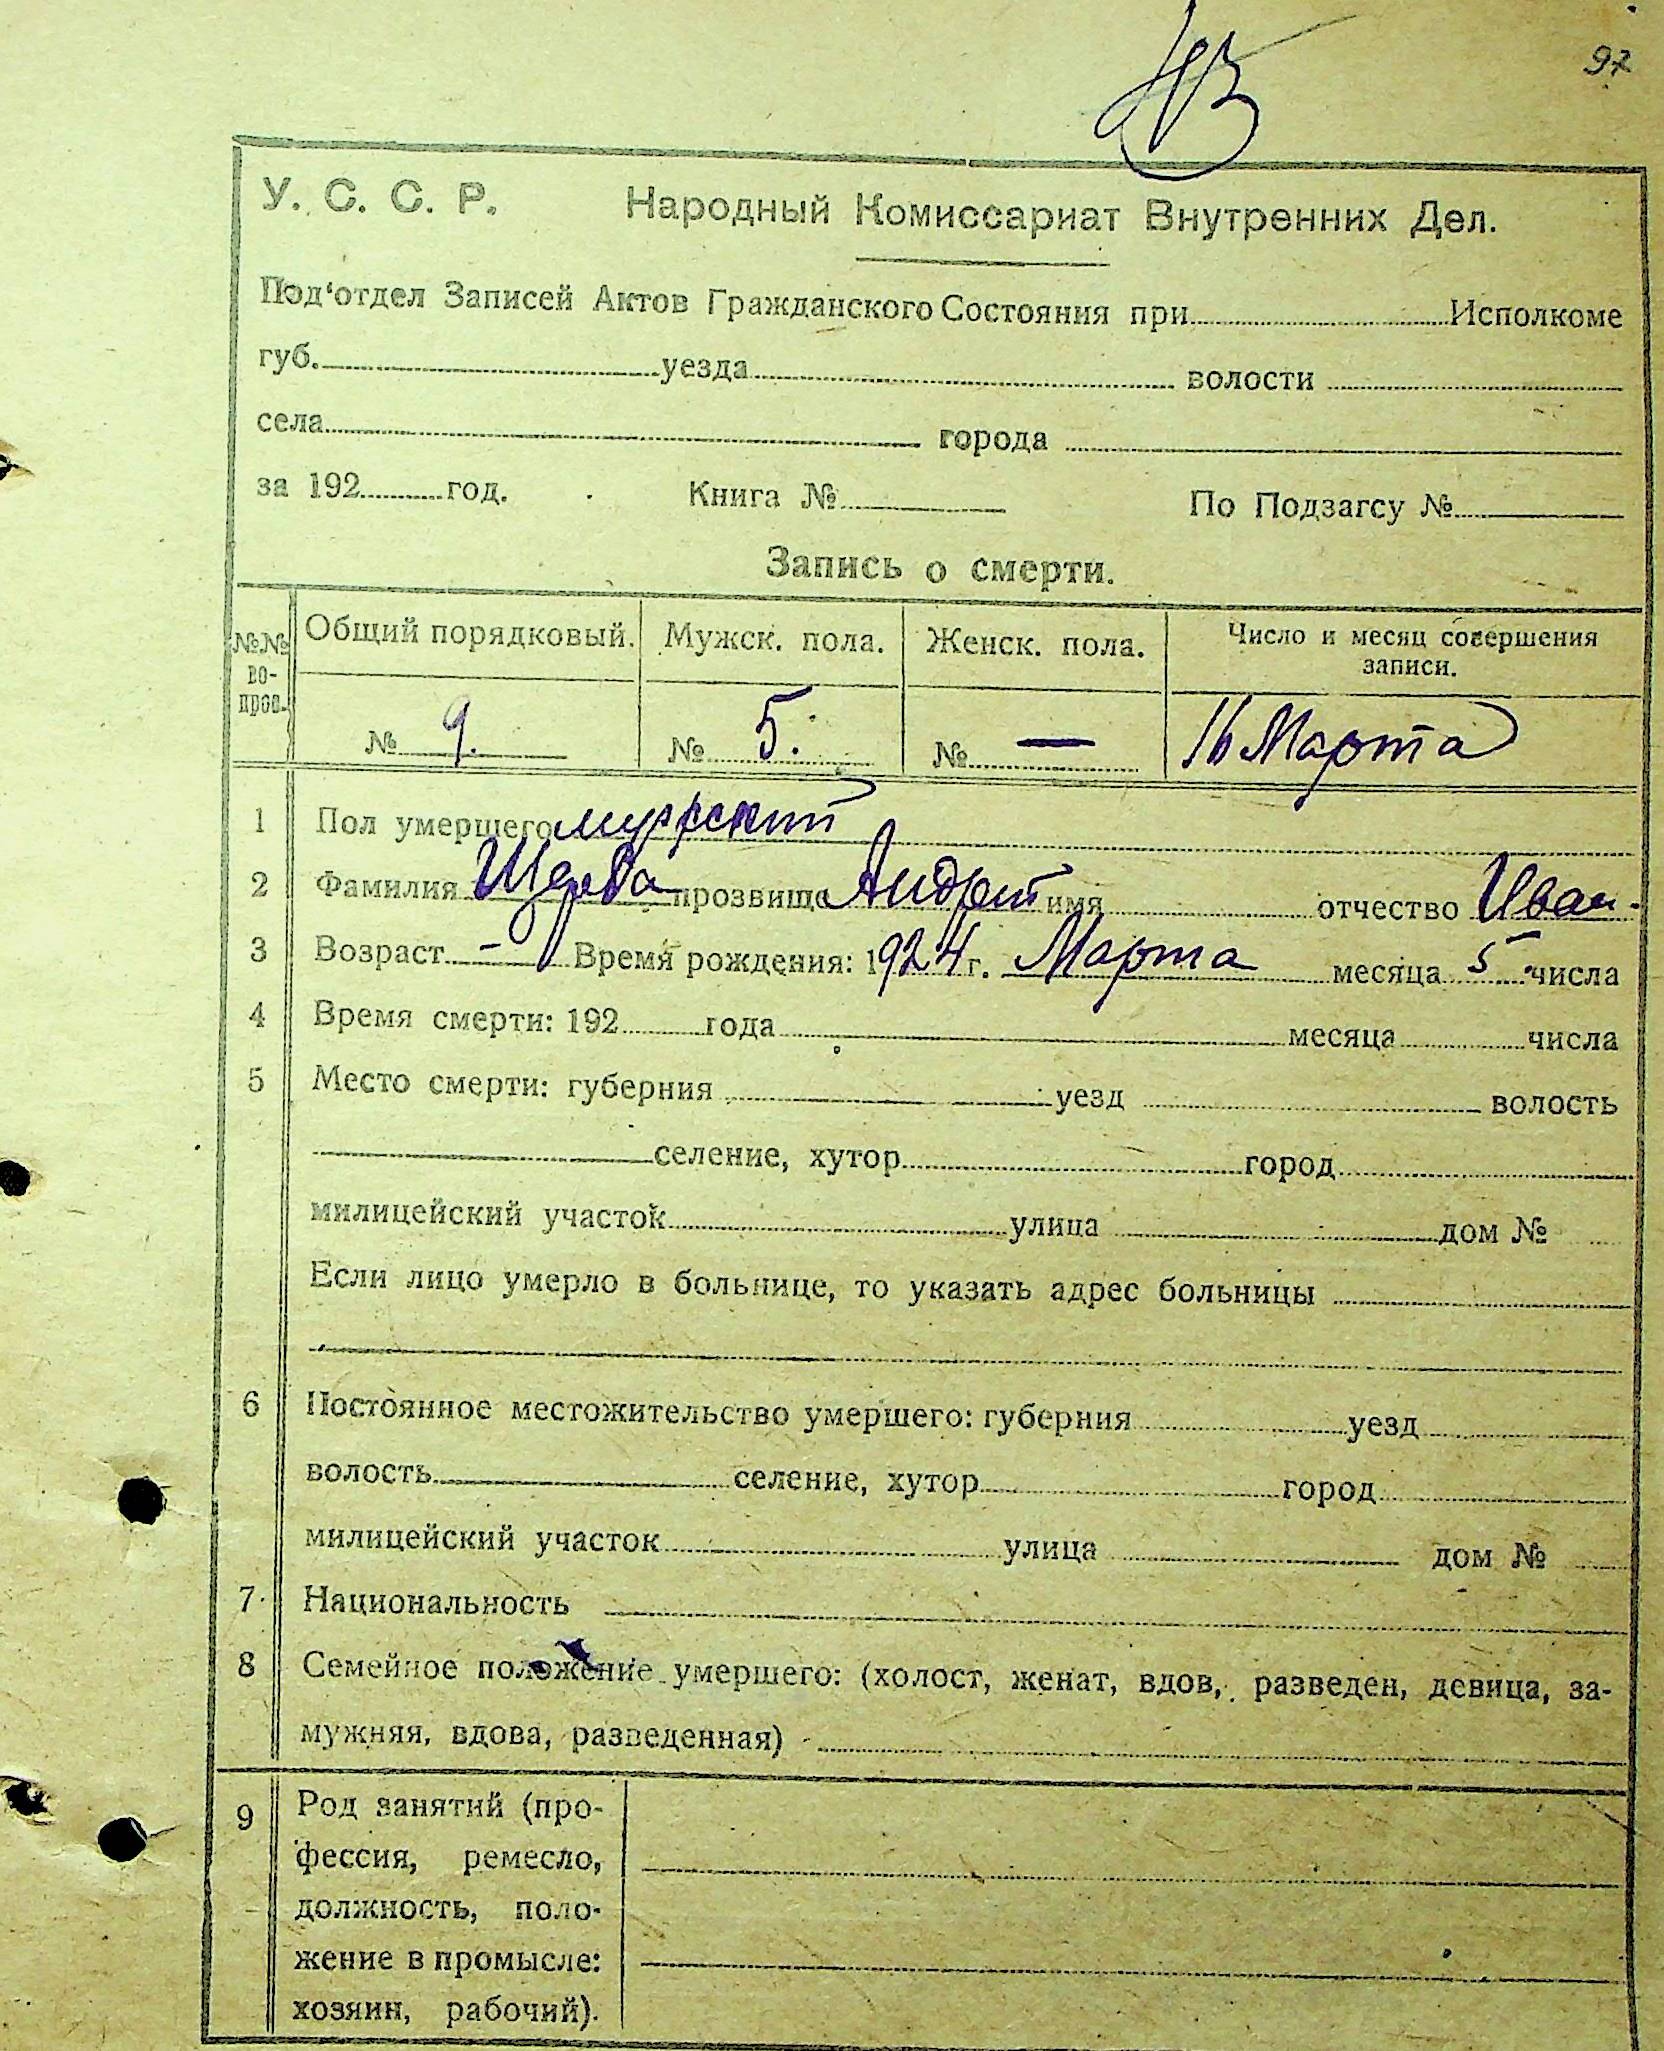 97
У. С. С. Р. Народный Комиссариат Внутренних Дел.
Под'отдел Записей Актов Гражданского Состояния при Исполкоме
губ. уезда волости
села города
за 192 год. Книга № По Подзагсу №
Запись о смерти.
№№ во- прос. Общий порядковый. Мужск. пола. Женск. пола. Число и месяц совершения записи.
№ 9. № 5. № — 16 Марта
1 Пол умершего мужской
2 Фамилия прозвище Андрей имя отчество Иван.
3 Возраст – Время рождения: 1924 г. Марта месяца 5 числа
4 Время смерти: 192 года месяца числа
5 Место смерти: губерния уезд волость
селение, хутор город
милицейский участок улица дом №
Если лицо умерло в больнице, то указать адрес больницы
6 Постоянное местожительство умершего: губерния уезд
волость селение, хутор город
милицейский участок улица дом №
7 Национальность
8 Семейное положение умершего: (холост, женат, вдов, разведен, девица, за-
мужняя, вдова, разведенная)
9 Род занятий (про-
фессия, ремесло,
должность, поло-
жение в промысле:
хозяин, рабочий).